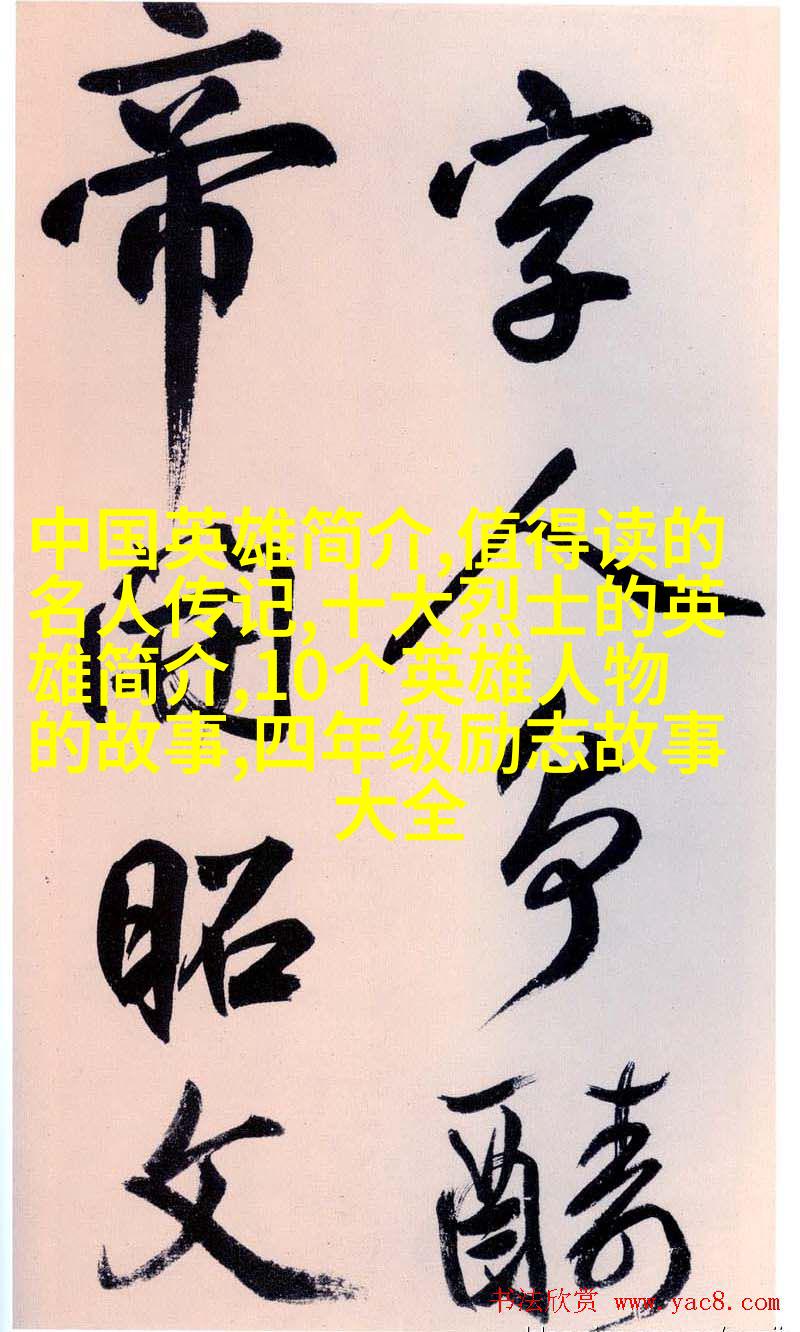 字人争
帝昭文
中国英雄简介,值得读的
名人传记,十大烈士的英
雄简介,10个英雄人物
的故事,四年级励志故事
大全
书法欣赏 www.yac8.com